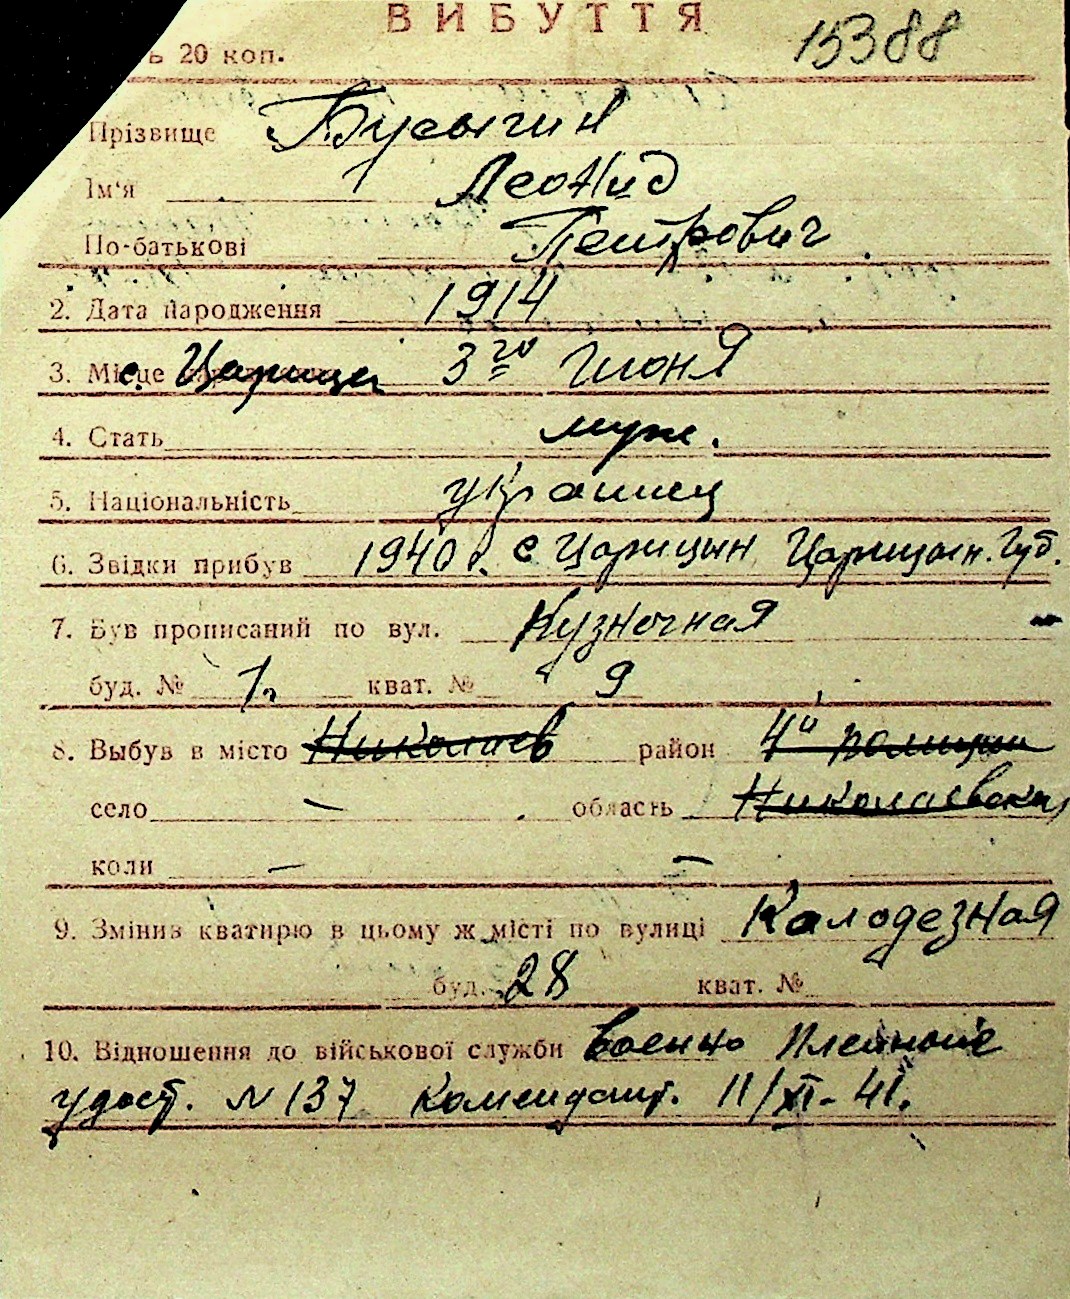 ВИБУТТЯ
15388
ь 20 коп.
Прізвище Бусыгин
Ім'я Леонид
По-батькові Петрович
2. Дата народження 1914
3. Місце с. Царицын 3го Июня
4. Стать муж.
5. Національність украинец
6. Звідки прибув 1940 г. с Царицын Царицын. Губ.
7. Був прописаний по вул. Кузнечная
буд. № 1. кват. № 9
8. Выбув в місто Николаев район 4й полиции
село — область Николаевская
коли — —
9. Змінив кватирю в цьому ж місті по вулиці Колодезная
буд. 28 кват. №
10. Відношення до військової служби Военно Пленные
удост. N 137 Комендант. 11/XI-41.